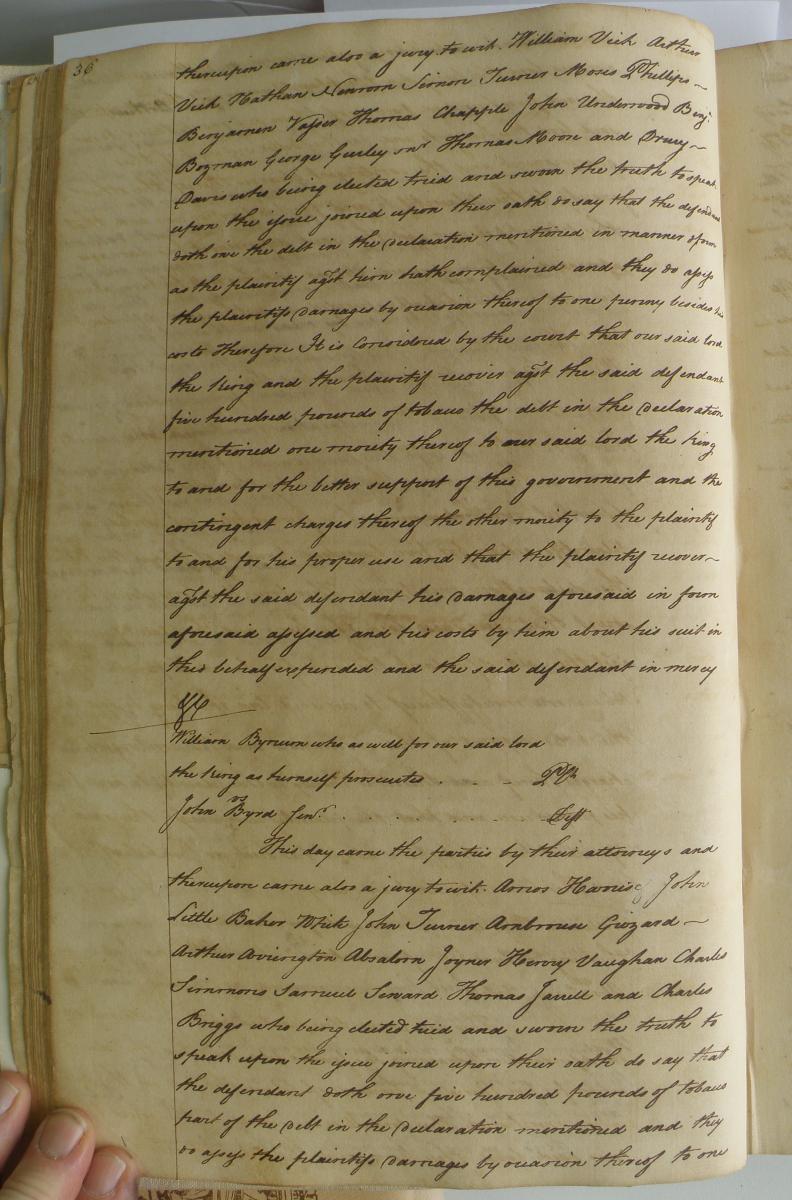 36
thereupon came also a jury to wit. William Vick Arthur
Vick Nathan Newsom Simon Turner Moses Phillips
Benjamin Vasser Thomas Chapple John Underwood Benj:
Bozman George Gurley snr Thomas Moore and Drury
Davis who being elected tried and sworn the truth to speak
upon the issue joined upon their oath do say that the defendant
doth owe the debt in the declaration mentioned in manner & form
as the plaintif agst him hath complained and they do assess
the plaintifs damages by occasion thereof to one penny besides his
costs Therefore It is Considered by the court that our said lord
the King and the plaintif recover agst the said defendant
five hundred pounds of tobacco the debt in the declaration
mentioned one moiety thereof to our said lord the King
to and for the better support of this government and the
contingent charges thereof the other moiety to the plaintif
to and for his proper use and that the plaintif recover
agst the said defendant his damages aforesaid in form
aforesaid assessed and his costs by him about his suit in
this behalf expended and the said defendant in mercy
&c
William Bynum who as well for our said lord
the King as himself prosecutes . . . Plt
vs
John Byrd Senr. . . . . . . Deft
This day came the parties by their attorneys and
thereupon came also a jury to wit. Amos Harris John
Little Baker John Turner Ambrouse Grizard
Arthur Arrington Absalom Joyner Henry Vaughan Charles
Simmons Samuel Seward Thomas Jarrell and Charles
Briggs who being elected tried and sworn the truth to
speak upon the issue joined upon their oath do say that
the defendant doth owe five hundred pounds of tobacco
part of the debt in the declaration mentioned and they
do assess the plaintifs damages by occasion thereof to one